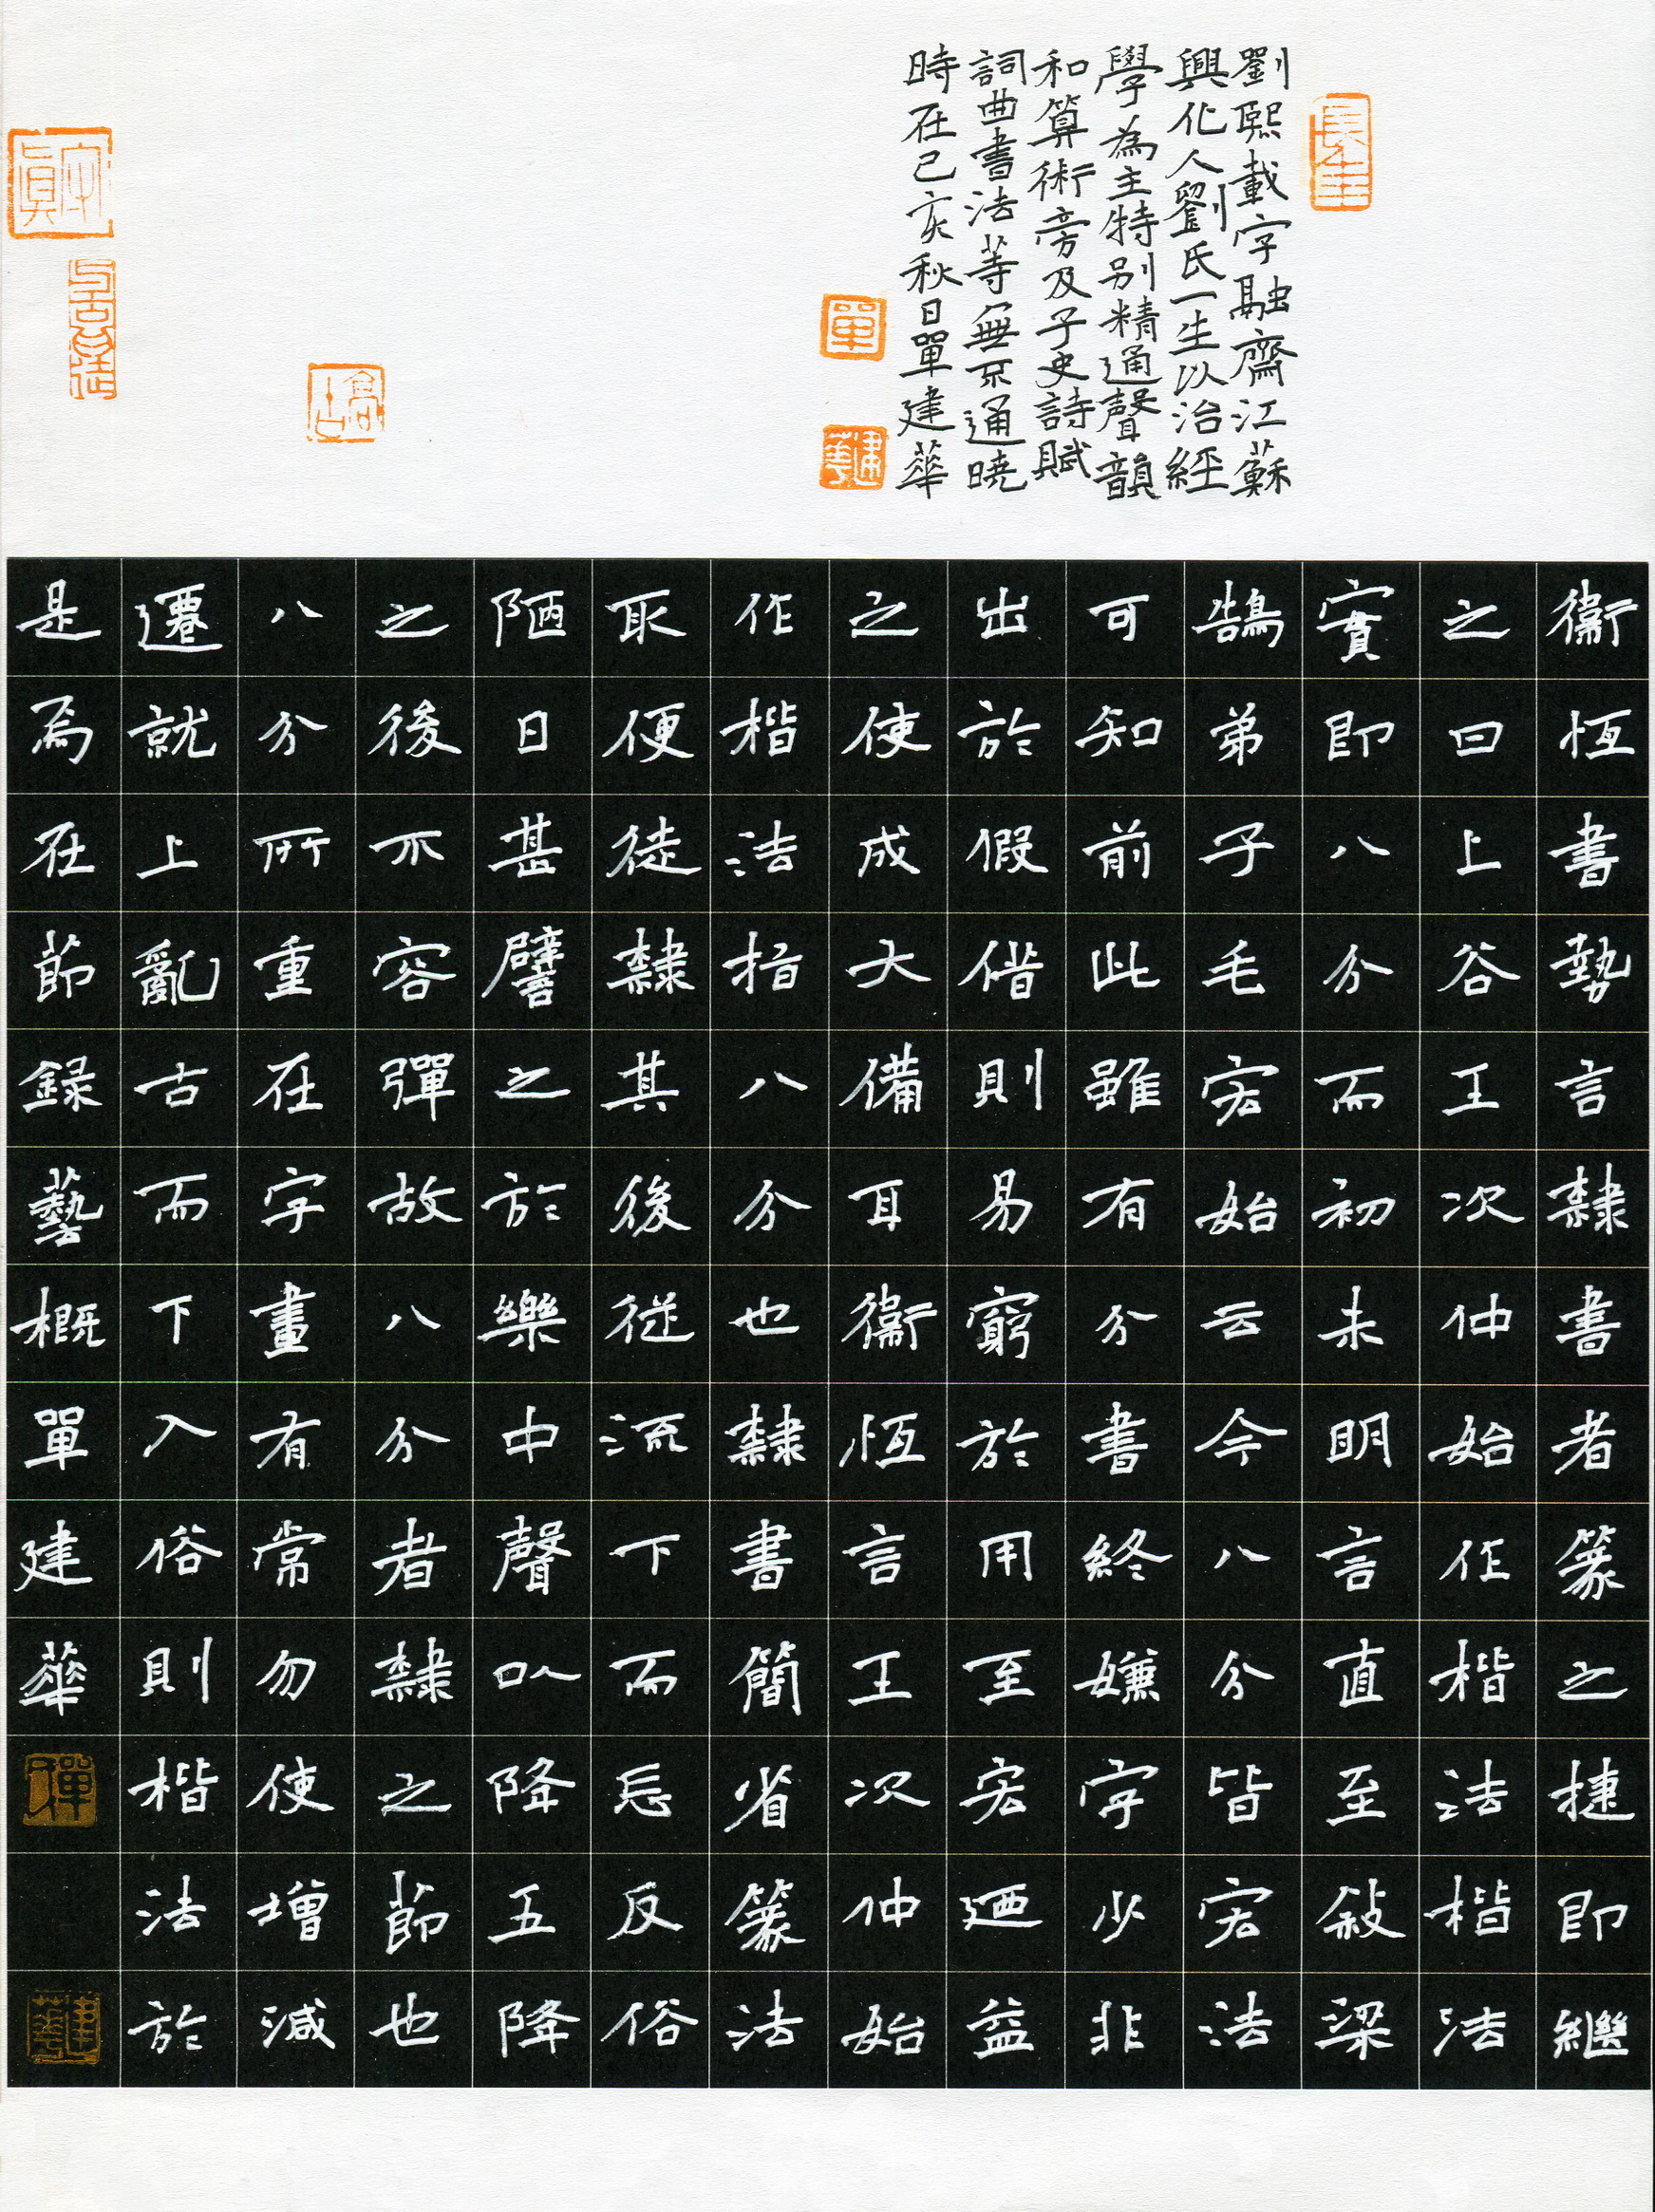 劉熙載字融齋江蘇
興化人劉氏一生以治經
學為主特别精通聲韻
和算術旁及子史詩賦
詞曲書法等無不通曉
時在己亥秋日單建華
長生
單
建華
與古為徒
衞恆書勢言隸書者篆之捷即繼
之曰上谷王次仲始作楷法楷法
實即八分而初未明言直至敍梁
鵠弟子毛宏始云今八分皆宏法
可知前此雖有分書終嫌字少非
出於假借則易窮於用至宏迺益
之使成大備耳衞恆言王次仲始
作楷法指八分也隸書簡省篆法
取便徒隸其後從流下而忘反俗
陋日甚譬之於樂中聲以降五降
之後不容彈故八分者隸之節也
八分所重在字畫有常勿使增減
遷就上亂古而下入俗則楷法於
是焉在節録藝概單建華
建華